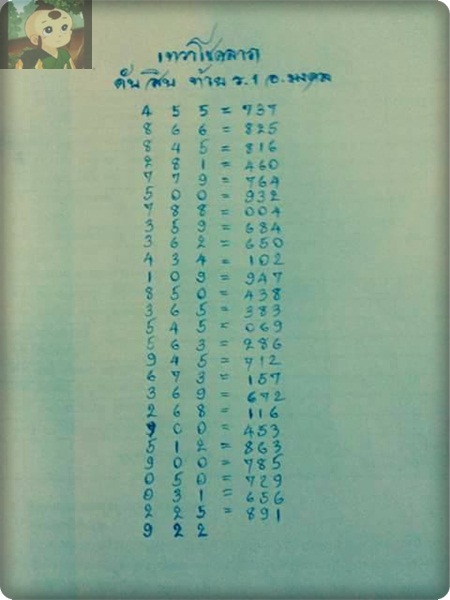 เทวาโชคลาภ
ดับ สิบ ท้าย ร.1 อ.มงคล
4 5 5 = 737
8 6 6 = 825
8 4 5 = 816
2 8 1 = 460
7 7 9 = 764
5 0 0 = 932
7 8 8 = 004
3 5 9 = 684
3 6 2 = 650
4 3 4 = 102
1 0 9 = 947
8 5 0 = 438
3 6 5 = 383
5 4 5 = 069
5 6 3 = 286
9 4 5 = 712
6 7 3 = 157
3 6 9 = 672
2 6 8 = 116
9 0 0 = 453
5 1 2 = 863
9 0 0 = 785
0 5 0 = 729
0 3 1 = 656
2 2 5 = 891
9 2 2